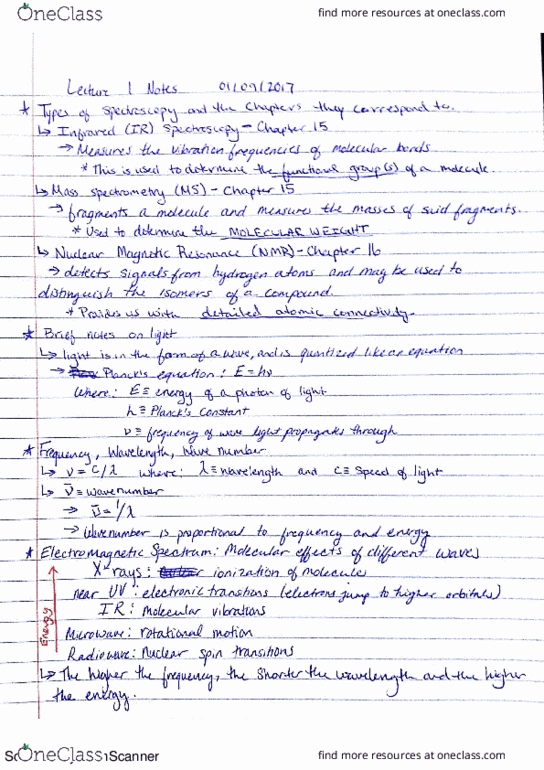 OneClass
find more resources at oneclass.com
Lecture 1 Notes 01/09/2017
* Types of Spectroscopy and the Chapters they correspond to.
↳ Infrared (IR) Spectroscopy - Chapter 15
→ Measures the vibration frequencies of molecular bonds.
* This is used to determine the functional group(s) of a molecule.
↳ Mass spectrometry (MS) - Chapter 15
→ fragments a molecule and measure the masses of said fragments.
* Used to determine the MOLECULAR WEIGHT
↳ Nuclear Magnetic Resonance (NMR) - Chapter 16
→ detects signals from hydrogen atoms and may be used to
distinguish the isomers of a compound.
* Provides us with detailed atomic connectivity.
* Brief notes on light
↳ light is in the form of a wave, and is quantized like an equation
→ Planck's equation: E = hν
Where: E ≡ energy of a photon of light
h ≡ Planck's Constant
ν ≡ frequency of wave light propagates through
* Frequency, Wavelength, Wave number
↳ ν = c/λ where: λ ≡ wavelength and c ≡ speed of light
↳ ν̅ ≡ wavenumber
→ ν̅ = 1/λ
→ Wavenumber is proportional to frequency and energy
* Electromagnetic Spectrum: Molecular effects of different waves
X-rays: ionization of molecule
near UV: electronic transitions (electrons jump to higher orbitals)
IR: Molecular vibrations
Energy
Microwave: rotational motion
Radiowave: Nuclear spin transitions
↳ The higher the frequency, the shorter the wavelength and the higher
the energy.
OneClass
Scanner
find more resources at oneclass.com